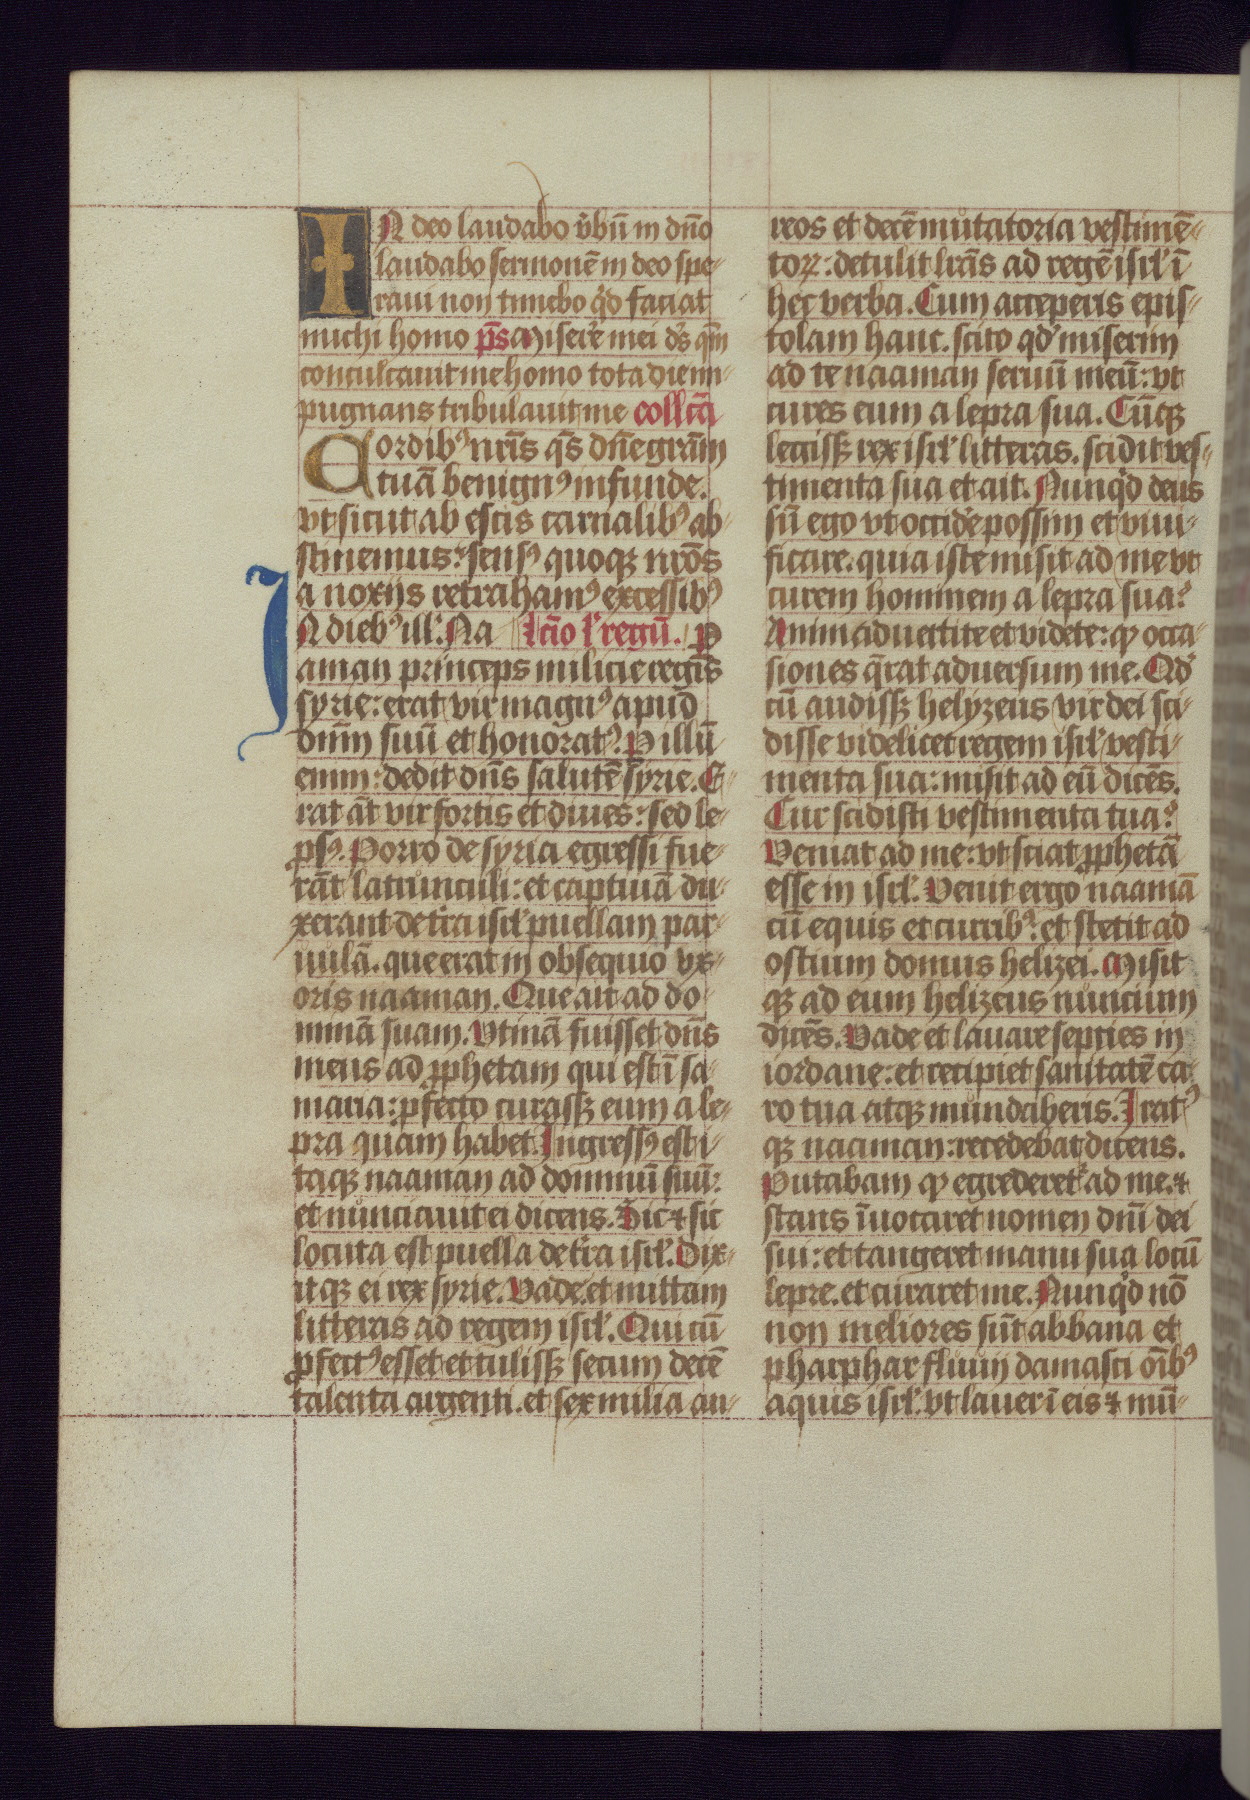 IN deo laudabo v̓bū in dn̄o
laudabo sermonē in deo spe-
raui non timebo qd̓ faciat
michi homo p̄s Miserer̄e mei ds̄ qm̄
conculcauit me homo tota die im-
pugnans tribulauit me collc̄a
Cordibꝰ nrīs qs̄ dn̄e grām
tuā benignꝰ infunde.
vt sicut ab escis carnalibꝰ ab-
stinemus: sensꝰ quoqꝫ nrōs
a noxijs retrahamꝰ excessibꝰ
IN diebꝰ ill̓. Na lc̄io l̓ regū. P
aman princeps milicie regis
syrie: erat vir magnꝰ apud
dnm̄ suū et honoratꝰ. P illū
enim: dedit dn̄s salutē syrie. E-
rat āt vir fortis et diues: sed le-
ꝓsꝰ. Porro de syria egressi fue-
rāt latrunculi: et captiuā du-
xerant de tr̄a isrl̓ puellam par-
uulā. que erat in obsequio vx-
oris naaman. Que ait ad do-
minā suam. Vtinā fuisset dn̄s
meus ad ꝓphetam qui est ī sa-
maria: ꝓfecto curassꝫ eum a le-
pra quam habet. Ingressꝰ est i-
taqꝫ naaman ad dominū suū:
et nunciauit ei dicens. Sic ⁊ sic
locuta est puella de tr̄a isrl̓. Dix-
itqꝫ ei rex syrie. Vade. et mittam
litteras ad regem isrl̓. Qui cū
ꝓfectꝰ esset et tulissꝫ secum decē
talenta argenti. et sex milia au-
reos et decē mutatoria vestimē-
toꝝ: detulit lrās ad regē isrl̓ ī
hec verba. Cum acceperis epis-
tolam hanc. scito qd̓ miserim
ad te naaman seruū meū: vt
cures eum a lepra sua. Cūqꝫ
legissꝫ rex isrl̓ litteras. scidit ves-
timenta sua et ait. Nunqd̓ deus
sū ego vt occid̓e possim et viui-
ficare. quia iste misit ad me vt
curem hominem a lepra sua?
Animaduertite et videte: ꝙ occa-
siones q̄rat aduersum me. Qd̓
cū audissꝫ helyzeus vir dei sci-
disse videlicet regem isrl̓ vesti-
menta sua: misit ad eū dicēs.
Cur scidisti vestimenta tua?
Veniat ad me: vt sciat ꝓphetā
esse in isrl̓. Venit ergo naamā
cū equis et curribꝰ: et stetit ad
ostium domus helizei. Misit
qꝫ ad eum helizeus nuncium
dicēs. Vade et lauare septies in
iordane: et recipiet sanitatē ca-
ro tua atqꝫ mundaberis. Iratꝰ
qꝫ naaman: recedebat dicens.
Putabam ꝙ egrederet᷑ ad me. ⁊
stans īuocaret nomen dn̄i dei
sui: et tangeret manu sua locū
lepre. et curaret me. Nunqd̓ nō
non meliores sūt abbana et
pharphar fluuij damasci oībꝰ
aquis isrl̓. vt lauer ī eis ⁊ mū-